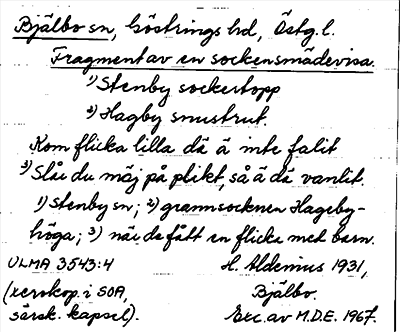 Bjälbo sn, Göstrings hd, Östg.l.
Fragment av en sockensmädevisa.
1) Stenby sockertopp
2) Hagby snustrut.
Kom flicka lilla dä ä inte falit
3) Slår du mäj på plikt, så ä dä vanlit.
1) Stenby sn; 2) grannsocknen Hageby-
höga; 3) när de fått en flicka med barn.
ULMA 3543:4
H. Aldenius 1931,
(xeroskop. i SOA,
Bjälbo.
särsk. kapsel).
Exc. av M.D.E. 1967.